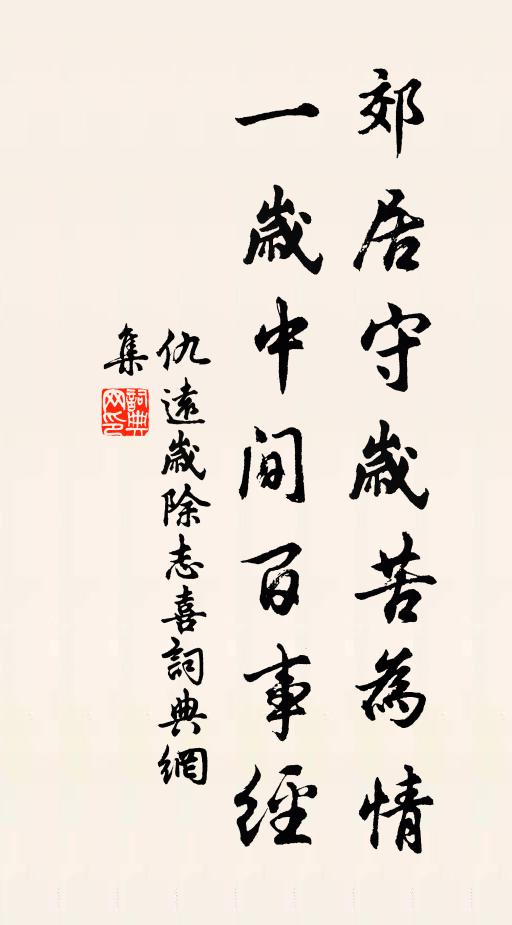 郊居守歲苦為情
一歲中間百事經
仇遠歲除志喜詞典網
集
詞典网印